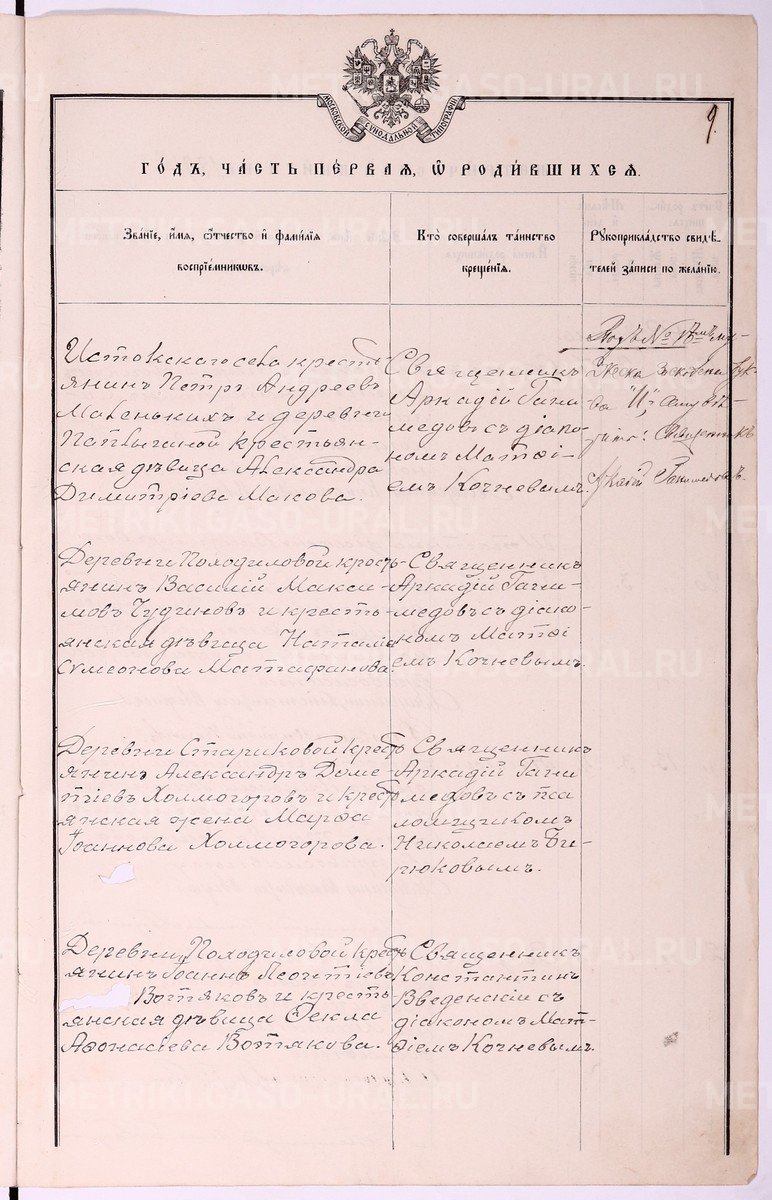 МОСКОВСКОЙ СѴНОДАЛЬНОЙ ТИПОГРАФІИ
9.
ГО́ДЪ, ЧА́СТЬ ПЕ́РВАЯ, Ѽ РОДИ́ВШИХСЯ.
Зва́нїе, и҆́мя, ѻ҆́тчество и҆ фами́лїя воспрїе́мникѡвъ.
Кто̀ соверша́лъ та́инство креще́нїя.
Рꙋкоприкла́дство свидѣ́телей за́писи по жела́нїю.
Истокскаго села кресть-
янинъ Петръ Андреевъ
Маленькихъ и деревни
крестьян-
ская дѣвица Александра
Димитріева Макова.
Священникъ
Аркадій Гани-
медовъ съ діако-
номъ Матѳі-
емъ Кочневымъ.
Священникъ
Деревни Походиловой кресть-
янинъ Василій Макси-
мовъ Чудиновъ и кресть-
янская дѣвица Наталія
Сумеонова Матафанова.
Священникъ
Аркадій Гани-
медовъ съ діако-
номъ Матѳі-
емъ Кочневымъ.
Деревни Стариковой крест
янинъ Александръ Доме-
тіевъ Холмогоровъ и крест
янская жена Марѳа
Іоаннова Холмогорова.
Священникъ
Аркадій Гани-
медовъ съ пса-
ломщикомъ
Николаемъ Би-
рюковымъ.
Деревни Походиловой крест
янинъ Іоаннъ Леонтіевъ
Вотяковъ и кресть
янская дѣвица Ѳекла
Аѳонасіева Вотякова.
Священникъ
Константинъ
Введенскій съ
діакономъ Мат-
ѳіемъ Кочневымъ.
METRIKI.GASO-URAL.RU